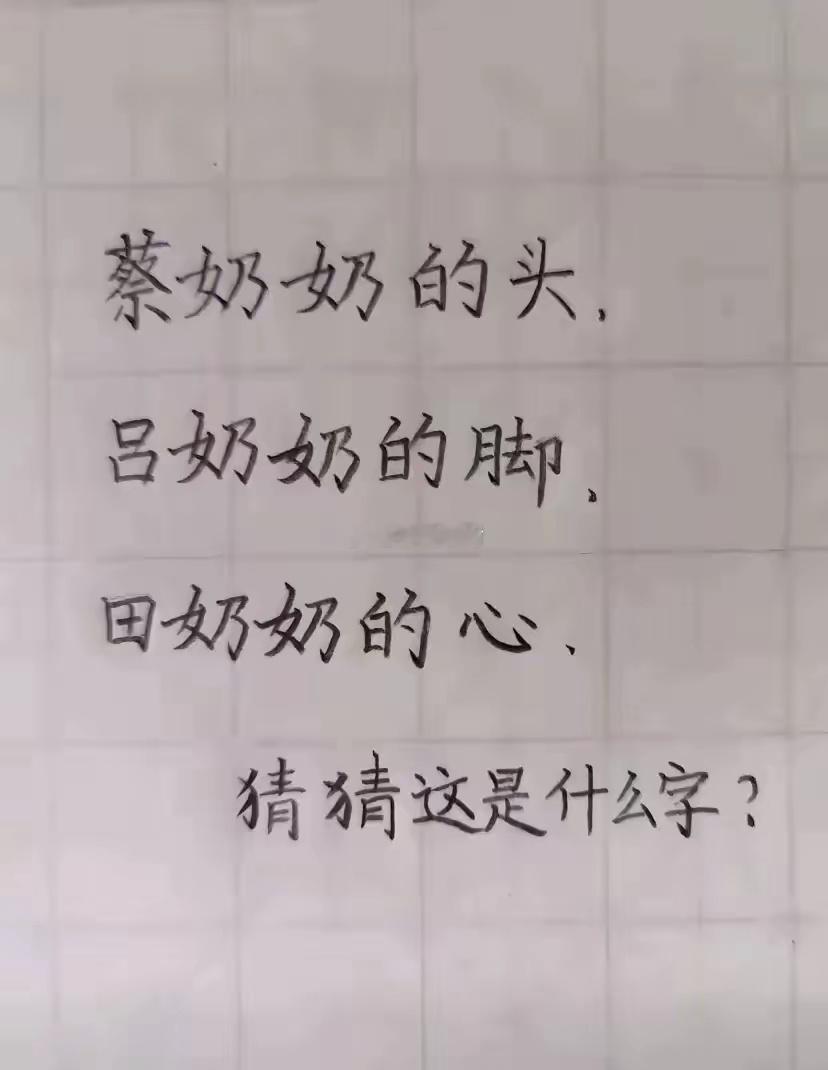 蔡奶奶的头、
吕奶奶的脚、
田奶奶的心、
猜猜这是什么字?